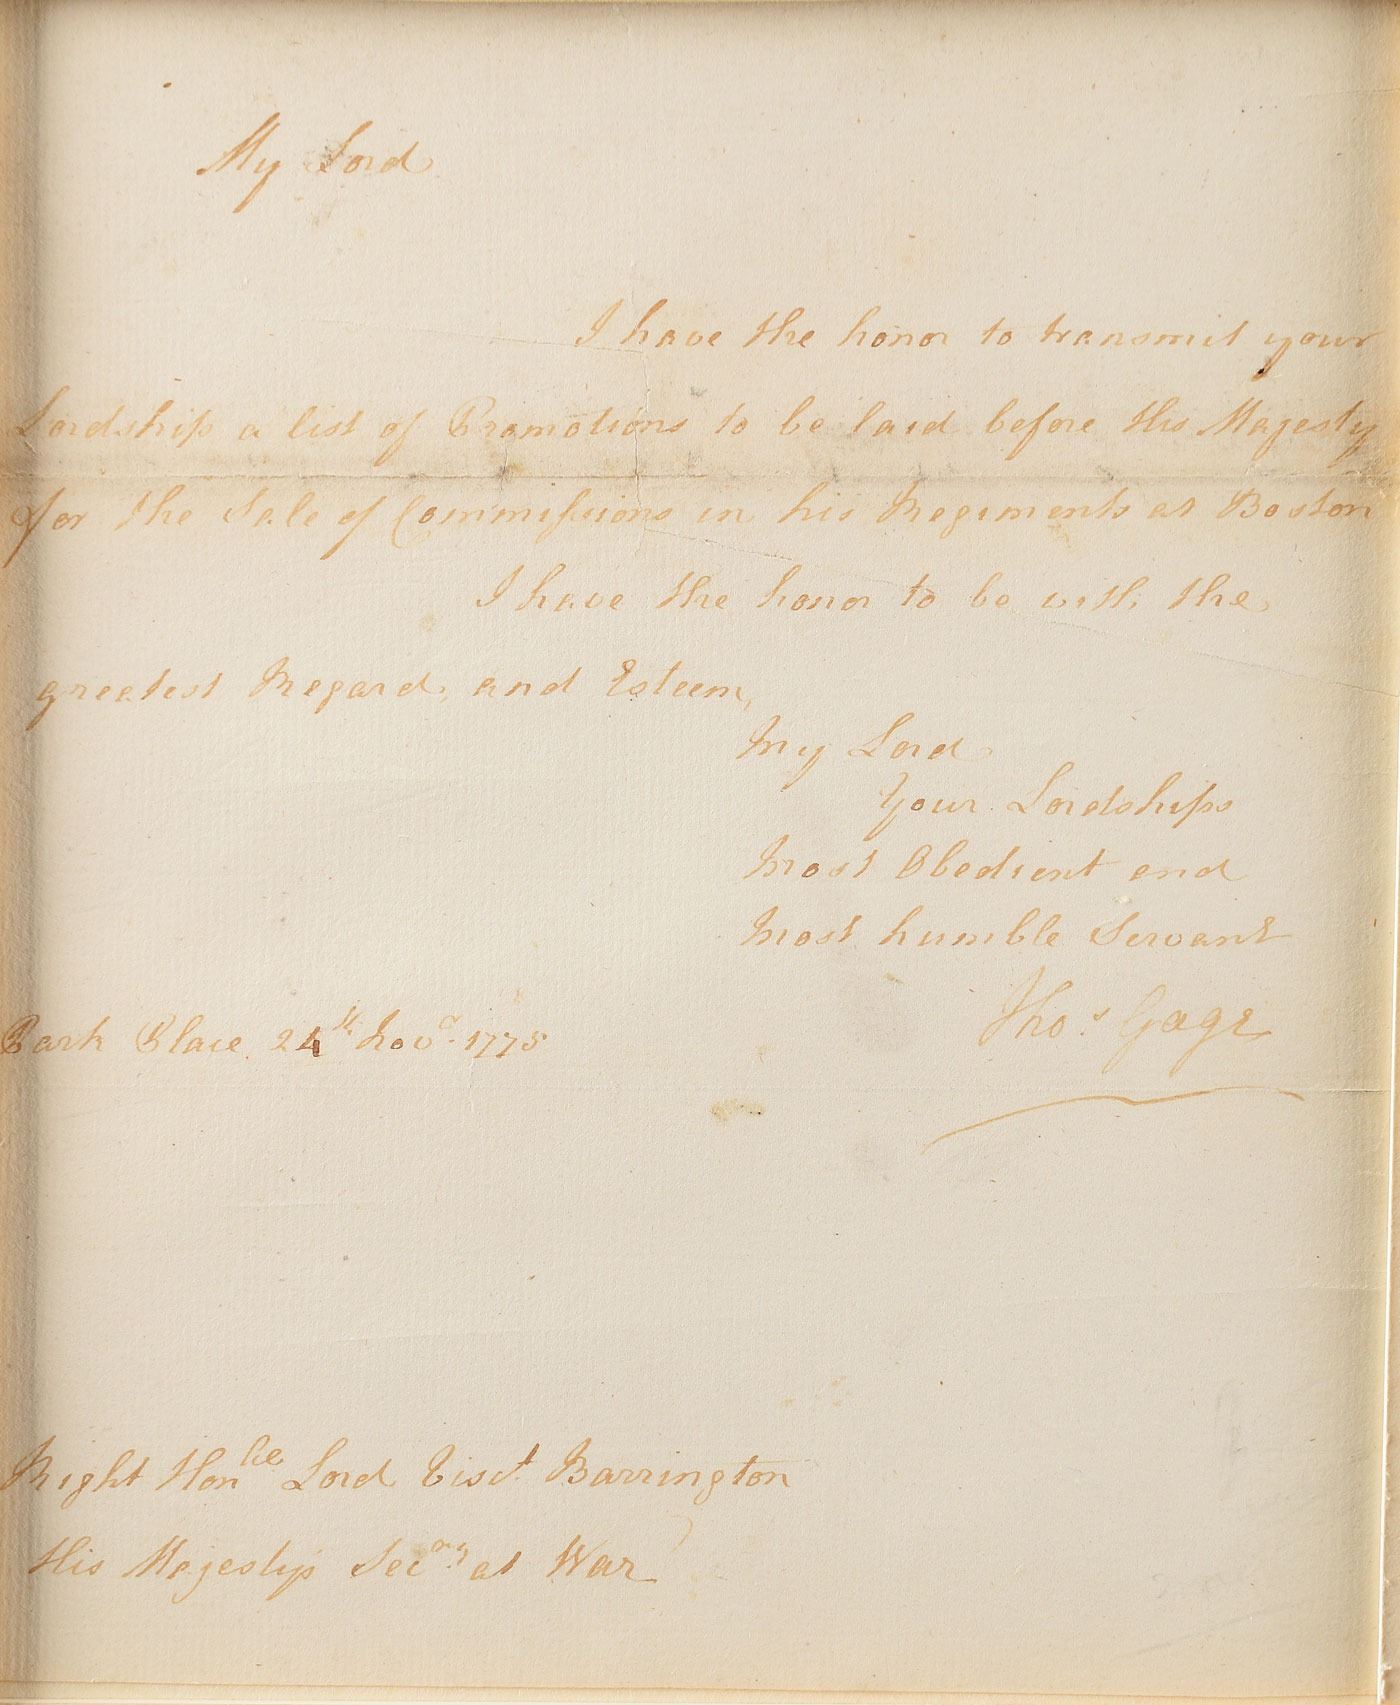 My Lord
I have the honor to transmit your
Lordship a list of Promotions to be laid before His Majesty
for the Sale of Commissions in his Regiments at Boston
I have the honor to be with the
greatest Regard, and Esteem,
My Lord
Your Lordships
Most Obedient and
Most humble Servant
Thos. Gage
Park Place 24th Novr. 1775
Right Honble Lord Visct. Barrington
His Majestys Secry at War